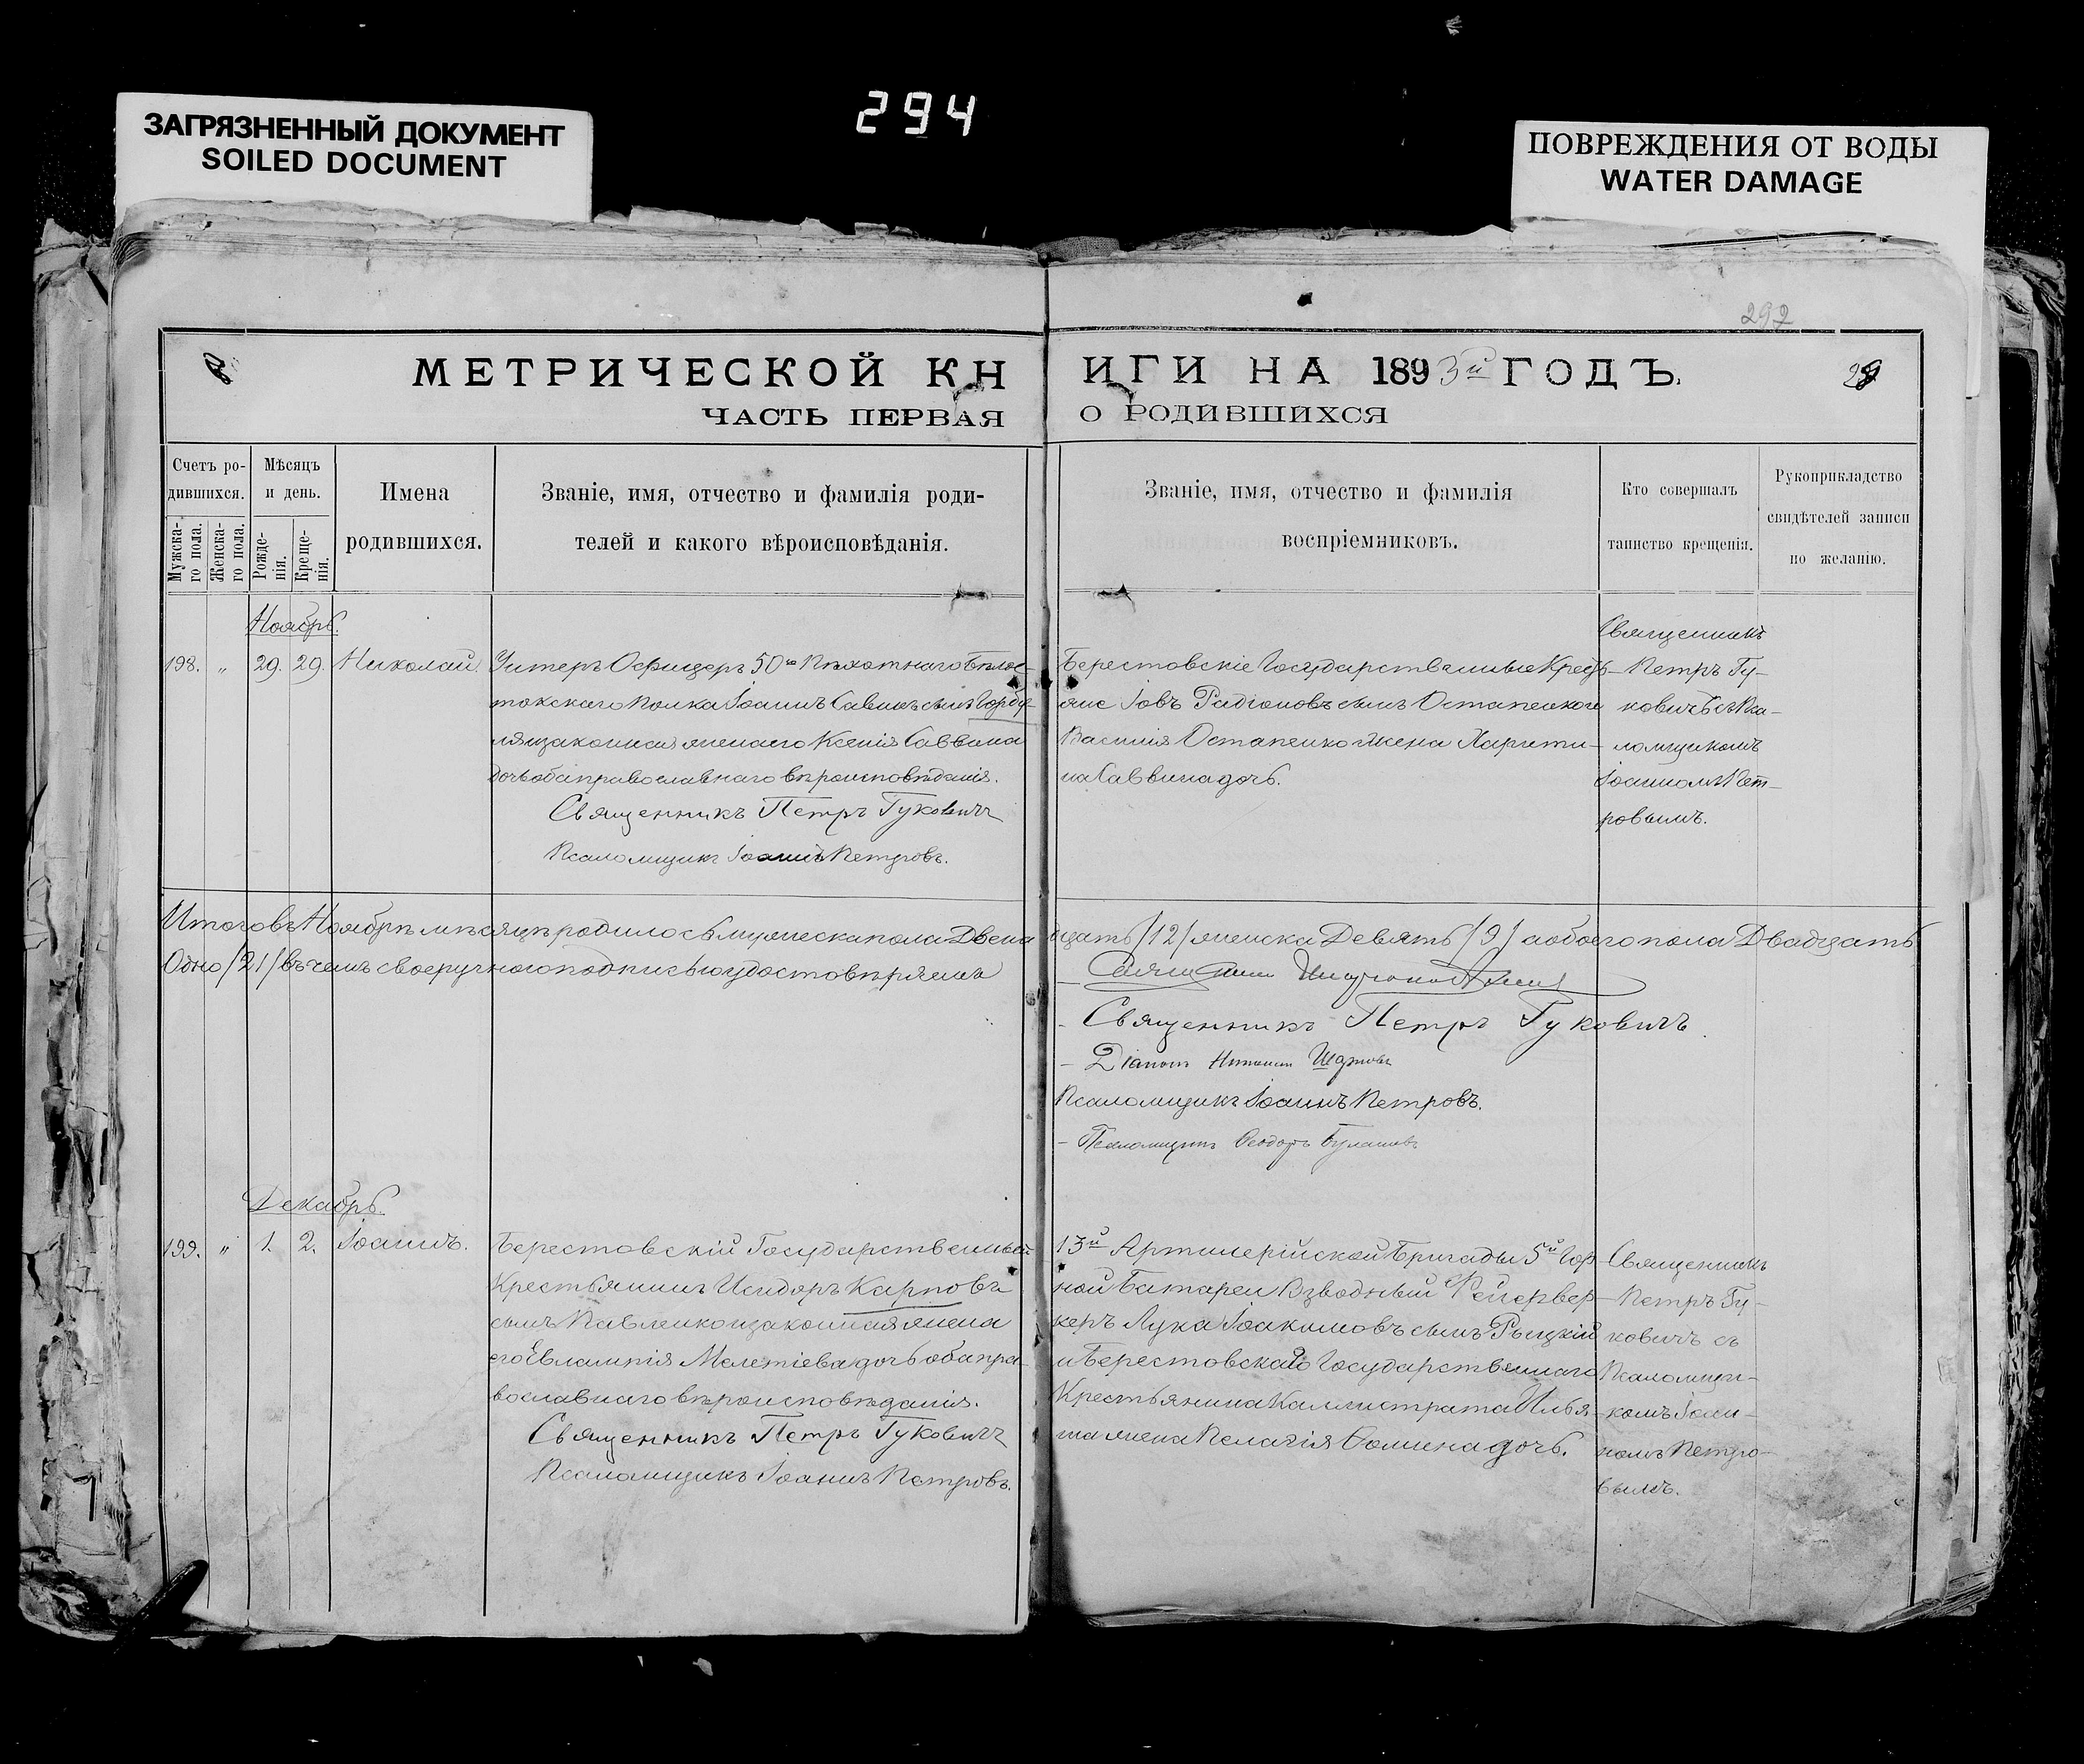 294
ЗАГРЯЗНЕННЫЙ ДОКУМЕНТ
SOILED DOCUMENT
ПОВРЕЖДЕНИЯ ОТ ВОДЫ
WATER DAMAGE
292
МЕТРИЧЕСКОЙ КНИГИ НА 1893й ГОДЪ.
29
ЧАСТЬ ПЕРВАЯ О РОДИВШИХСЯ
Счетъ ро-
дившихся.
Мужска-
го пола.
Женска-
го пола.
Мѣсяцъ
и день.
Рожде-
нія.
Креще-
нія.
Имена
родившихся.
Званіе, имя, отчество и фамилія роди-
телей и какого вѣроисповѣданія.
Званіе, имя, отчество и фамилія
воспріемниковъ.
Кто совершалъ
таинство крещенія.
Рукоприкладство
свидѣтелей записи
по желанію.
Ноябрь.
198. „ 29. 29. Николай.
Унтеръ Офицеръ 50го Пѣхотнаго Бѣлос-
токскаго Полка Іоаннъ Савинъ сынъ Горбу-
ля и законная жена его Ксенія Саввина
дочь оба православнаго вѣроисповѣданія.
Священникъ Петръ Гуковичъ
Псаломщикъ Іоаннъ Петровъ.
Берестовскіе Государственные Кресть-
яне Іовъ Радіоновъ сынъ Остапенко и
Василія Остапенко жена Харити-
на Саввина дочь.
Священникъ
Петръ Гу-
ковичъ съ Пса-
ломщикомъ
Іоанномъ Пет-
ровымъ.
Итого въ Ноябрѣ мѣсяцѣ родилось мужеска пола Двенадцать /12/ женска Девять /9/ а обоего пола Двадцать
Одно /21/ въ чемъ своеручною подписью удостовѣряемъ
Священникъ
Священникъ Петръ Гуковичъ
Діаконъ
Псаломщикъ Іоаннъ Петровъ.
Псаломщикъ Ѳеодоръ
Декабрь.
199. „ 1. 2. Іоаннъ.
Берестовскій Государственный
Крестьянинъ Исидоръ Карповъ
сынъ Павленко и законная жена
его Евлампія Мелетіева дочь оба пра-
вославнаго вѣроисповѣданія.
Священникъ Петръ Гуковичъ
Псаломщикъ Іоаннъ Петровъ.
13й Артилерійской Бригады 5й Гор-
ной Батареи Взводный Фейервер-
керъ Лука Іоакимовъ сынъ Рыцкій
и Берестовскаго Государственнаго
Крестьянина Каллистрата Илья-
ша жена Пелагія Ѳомина дочь.
Священникъ
Петръ Гу-
ковичъ съ
Псаломщи-
комъ Іоан-
номъ Петро-
вымъ.